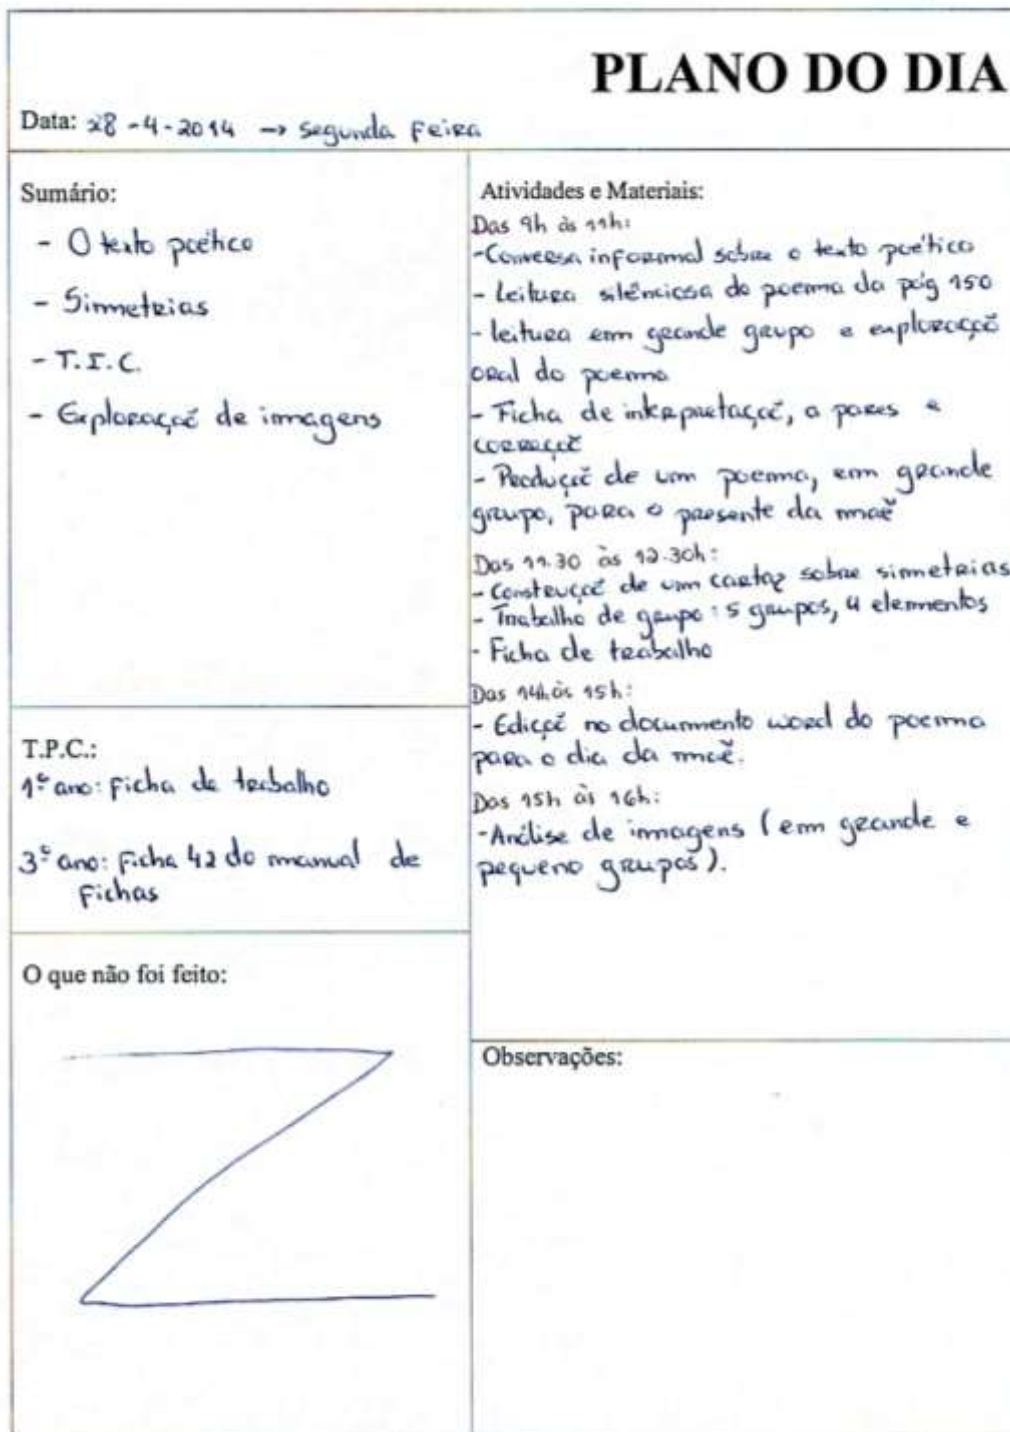 PLANO DO DIA
Data: 28-4-2014 → segunda feira
Sumário:
- O texto poético
- Simetrias
- T.I.C.
- Exploração de imagens
T.P.C.:
1º ano: ficha de trabalho
3º ano: ficha 42 do manual de
fichas
O que não foi feito:
Atividades e Materiais:
Das 9h às 11h:
- Conversa informal sobre o texto poético
- leitura silênciosa do poema da pág 150
- leitura em grande grupo e exploração
oral do poema
- Ficha de interpretação, a pares e
correção
- Produção de um poema, em grande
grupo, para o presente da mãe
Das 11.30 às 12.30h:
- Construção de um cartaz sobre simetrias
- Trabalho de grupo: 5 grupos, 4 elementos
- Ficha de trabalho
Das 14h às 15h:
- Edição no documento word do poema
para o dia da mãe.
Das 15h às 16h:
- Análise de imagens (em grande e
pequeno grupos).
Observações: